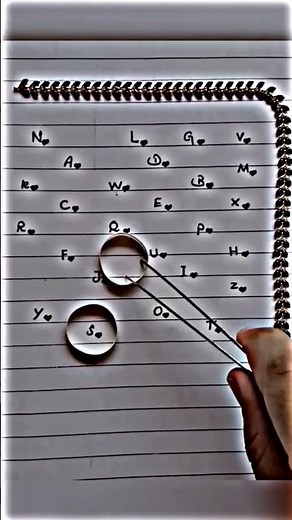 N♥ L♥ G♥ V♥
A♥ D♥ M♥
K♥ W♥ B♥
C♥ E♥ X♥
R♥ Q♥ P♥
F♥ U♥ H♥
J I♥
Z♥
Y♥ O♥
S♥ T♥